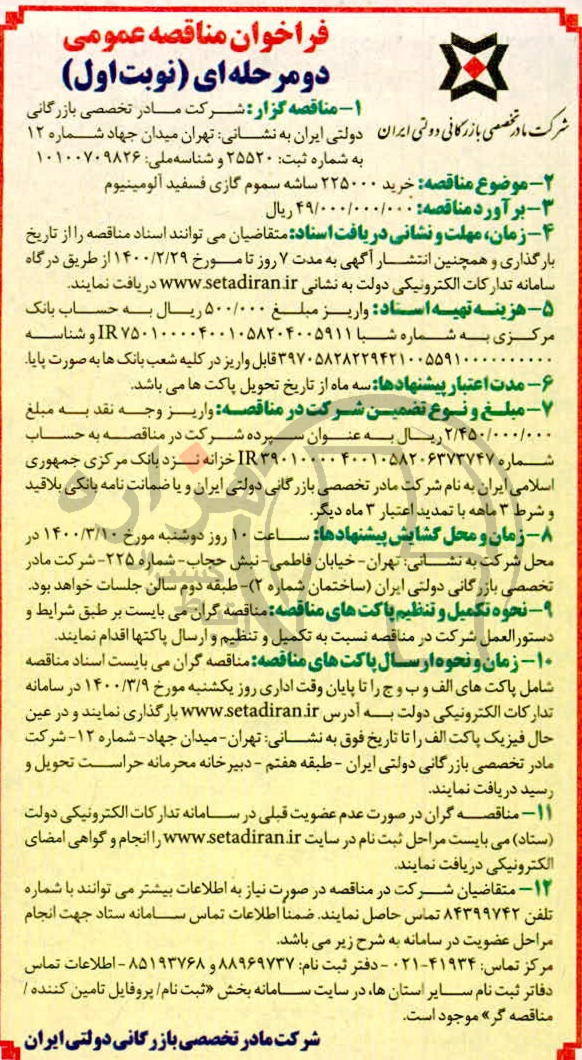 فراخوان مناقصه عمومی
دو مرحله ای (نوبت اول)
شرکت مادر تخصصی بازرگانی دولتی ایران
۱- مناقصه گزار: شرکت مادر تخصصی بازرگانی
دولتی ایران به نشانی: تهران میدان جهاد شماره ۱۲
به شماره ثبت: ۲۵۵۲۰ و شناسه‌ملی: ۱۰۱۰۰۷۰۹۸۲۶
۲- موضوع مناقصه: خرید ۲۲۵۰۰۰ ساشه سموم گازی فسفید آلومینیوم
۳- برآورد مناقصه: ۴۹/۰۰۰/۰۰۰/۰۰۰ ریال
۴- زمان، مهلت و نشانی دریافت اسناد: متقاضیان می توانند اسناد مناقصه را از تاریخ
بارگذاری و همچنین انتشار آگهی به مدت ۷ روز تا مورخ ۱۴۰۰/۲/۲۹ از طریق درگاه
سامانه تدارکات الکترونیکی دولت به نشانی www.setadiran.ir دریافت نمایند.
۵- هزینه تهیه اسناد: واریز مبلغ ۵۰۰/۰۰۰ ریال به حساب بانک
مرکزی به شماره شبا IR ۷۵۰۱۰۰۰۰۴۰۰۱۰۵۸۲۰۴۰۰۵۹۱۱ و شناسه
۳۹۷۰۵۸۲۸۲۲۹۴۲۱۰۰۵۵۹۱۰۰۰۰۰۰۰۰۰۰ قابل واریز در کلیه شعب بانک ها به صورت پایا.
۶- مدت اعتبار پیشنهادها: سه ماه از تاریخ تحویل پاکت ها می باشد.
۷- مبلغ و نوع تضمین شرکت در مناقصه: واریز وجه نقد به مبلغ
۲/۴۵۰/۰۰۰/۰۰۰ ریال به عنوان سپرده شرکت در مناقصه به حساب
شماره IR ۳۹۰۱۰۰۰۰۴۰۰۱۰۵۸۲۰۶۳۷۳۷۴۷ خزانه نزد بانک مرکزی جمهوری
اسلامی ایران به نام شرکت مادر تخصصی بازرگانی دولتی ایران و یا ضمانت نامه بانکی بلاقید
و شرط ۳ ماهه با تمدید اعتبار ۳ ماه دیگر.
۸- زمان و محل گشایش پیشنهادها: ساعت ۱۰ روز دوشنبه مورخ ۱۴۰۰/۳/۱۰ در
محل شرکت به نشانی: تهران- خیابان فاطمی- نبش حجاب- شماره ۲۲۵- شرکت مادر
تخصصی بازرگانی دولتی ایران (ساختمان شماره ۲)- طبقه دوم سالن جلسات خواهد بود.
۹- نحوه تکمیل و تنظیم پاکت های مناقصه: مناقصه گران می بایست بر طبق شرایط و
دستورالعمل شرکت در مناقصه نسبت به تکمیل و تنظیم و ارسال پاکتها اقدام نمایند.
۱۰- زمان و نحوه ارسال پاکت های مناقصه: مناقصه گران می بایست اسناد مناقصه
شامل پاکت های الف و ب و ج را تا پایان وقت اداری روز یکشنبه مورخ ۱۴۰۰/۳/۹ در سامانه
تدارکات الکترونیکی دولت به آدرس www.setadiran.ir بارگذاری نمایند و در عین
حال فیزیک پاکت الف را تا تاریخ فوق به نشانی: تهران- میدان جهاد- شماره ۱۲- شرکت
مادر تخصصی بازرگانی دولتی ایران - طبقه هفتم - دبیرخانه محرمانه حراست تحویل و
رسید دریافت نمایند.
۱۱- مناقصه گران در صورت عدم عضویت قبلی در سامانه تدارکات الکترونیکی دولت
(ستاد) می بایست مراحل ثبت نام در سایت www.setadiran.ir را انجام و گواهی امضای
الکترونیکی دریافت نمایند.
۱۲- متقاضیان شرکت در مناقصه در صورت نیاز به اطلاعات بیشتر می توانند با شماره
تلفن ۸۴۳۹۹۷۴۲ تماس حاصل نمایند. ضمناً اطلاعات تماس سامانه ستاد جهت انجام
مراحل عضویت در سامانه به شرح زیر می باشد.
مرکز تماس: ۴۱۹۳۴-۰۲۱- دفتر ثبت نام: ۸۸۹۶۹۷۳۷ و ۸۵۱۹۳۷۶۸ - اطلاعات تماس
دفاتر ثبت نام سایر استان ها، در سایت سامانه بخش «ثبت نام/ پروفایل تامین کننده /
مناقصه گر» موجود است.
شرکت مادر تخصصی بازرگانی دولتی ایران
هزاره